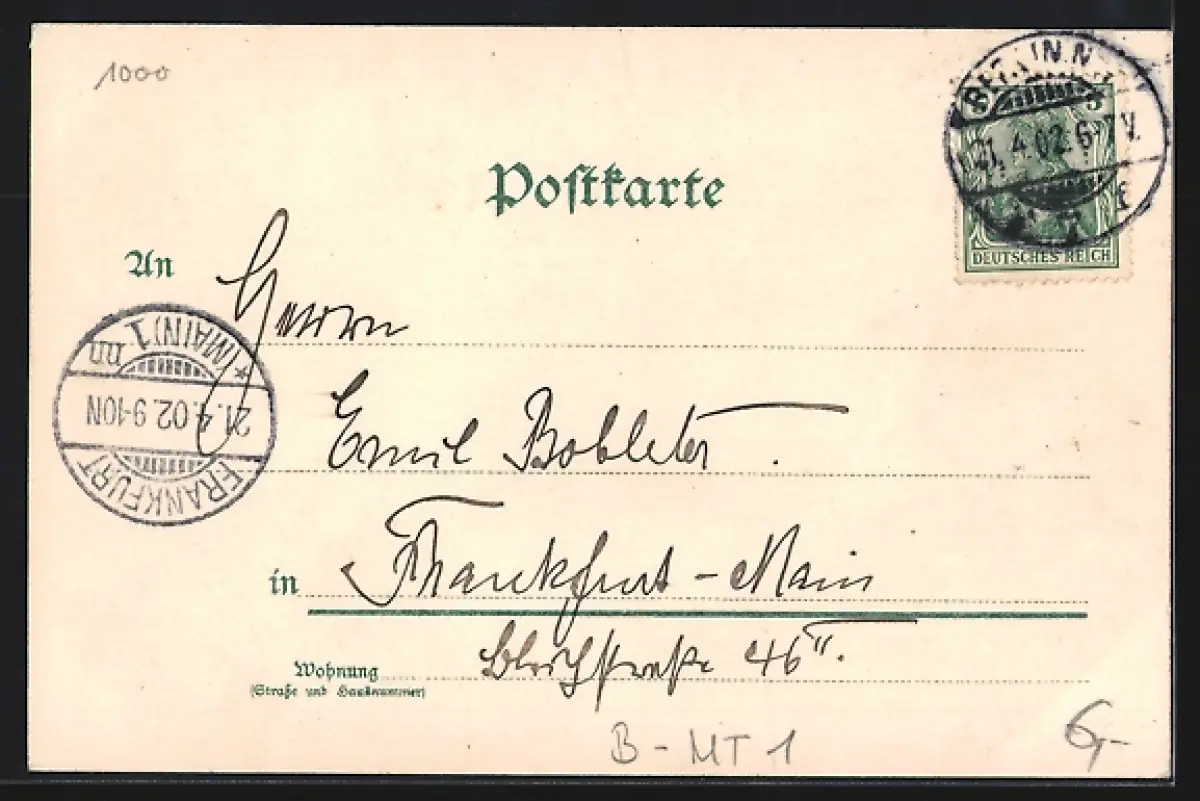 1000
BERLIN.N
21.4.02.6-7V.
5
DEUTSCHES REICH
Postkarte
An
Herrn
Emil Bobleter.
in Frankfurt-Main
Wohnung Bleichstraße 46II.
(Straße und Hausnummer)
FRANKFURT
21.4.02.9-10N
*(MAIN)1
nn
B-MT1
6,-